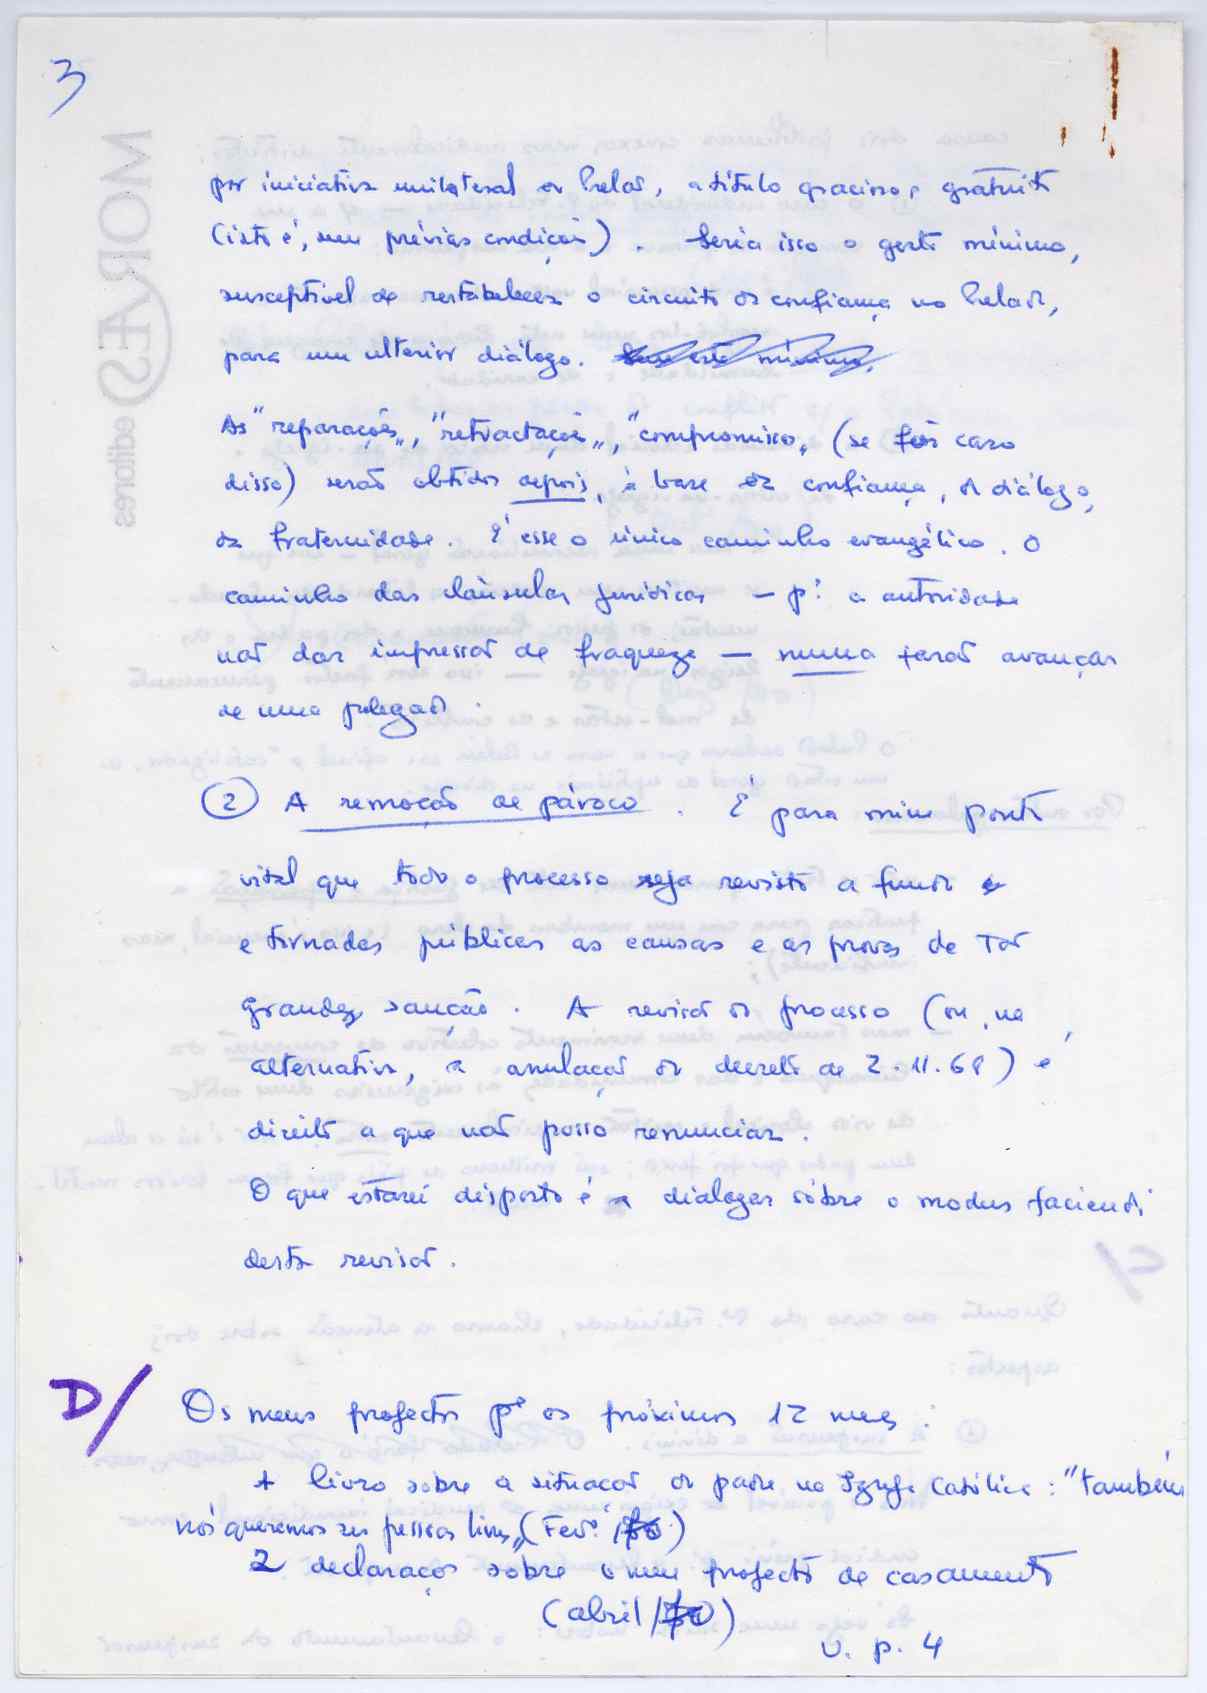 3
por iniciativa unilateral do Prelado, a título gracioso e gratuito
(isto é, sem prévias condições). Seria isso o gesto mínimo,
susceptível de restabelecer o circuito da confiança no Prelado,
para um ulterior diálogo. Sem este mínimo,
As "reparações", "retractações", "compromissos" (se fôr caso
disso) serão obtidos depois, à base da confiança, do diálogo,
da fraternidade. É esse o único caminho evangélico. O
caminho das cláusulas jurídicas — pª a autoridade
não dar impressão de fraqueza — nunca farão avançar
de uma polegada.
② A remoção de pároco. É para mim ponto
vital que todo o processo seja revisto a fundo
e tornadas públicas as causas e as provas de tão
grande sanção. A revisão do processo (ou, na
alternativa, a anulação do decreto de 2.11.68) é
direito a que não posso renunciar.
O que estarei disposto é a dialogar sôbre o modus faciendi
desta revisão.
D/ Os meus projectos pª os próximos 12 meses:
1 livro sobre a situação do padre na Igreja Católica: "também
nós queremos ser pessoas livres" (Fevº /70)
2 declaração sobre o meu projecto de casamento
(abril/70)
v. p. 4
MORÆS
editores